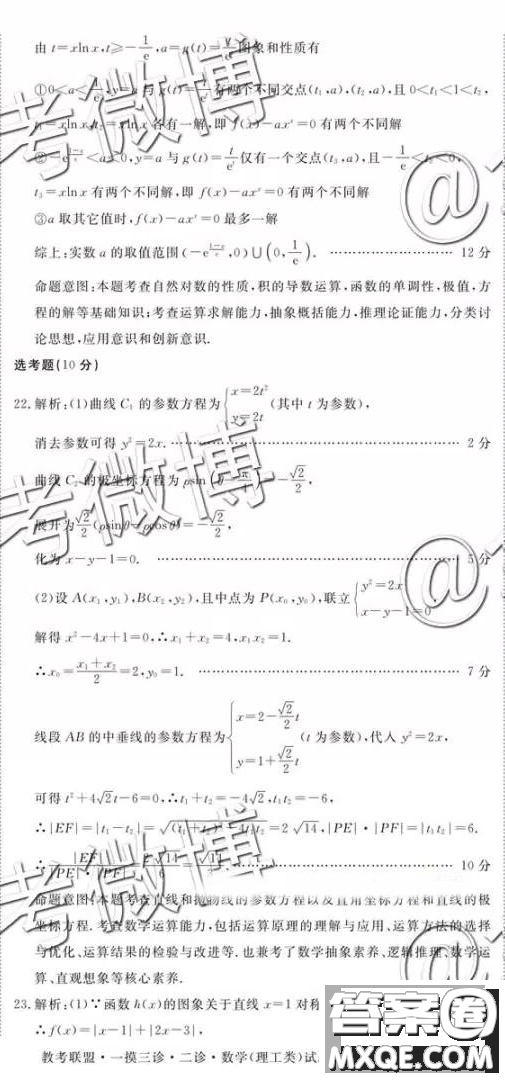 由 t=xln x, t⩾-1/e, a=g(t)= 图象和性质有
①0<a< ,y=a与g(t)= 有两个不同交点(t₁,a),(t₂,a),且 0<t₁<1<t₂,
t₁=xln x,t₂=xln x 各有一解,即 f(x)-axᵉ=0 有两个不同解
<a<0,y=a 与 g(t)=t/eᵗ仅有一个交点(t₃,a),且-1/e<t₃<0,
t₃=xln x 有两个不同解,即 f(x)-axᵉ=0 有两个不同解
③a 取其它值时,f(x)-axᵉ=0 最多一解
综上:实数 a 的取值范围 ,0)∪(0,1/e). 12 分
命题意图:本题考查自然对数的性质,积的导数运算,函数的单调性,极值,方
程的解等基础知识;考查运算求解能力,抽象概括能力,推理论证能力,分类讨
论思想,应用意识和创新意识.
选考题(10 分)
22.解析:(1)曲线 C₁ 的参数方程为{x=2t² y=2t (其中 t 为参数),
消去参数可得 y²=2x. 2 分
曲线 C₂ 的极坐标方程为 ρsin(θ-π/4)=-√2/2,
展开为√2/2(ρsin θ-ρcos θ)=-√2/2,
化为 x-y-1=0. 5 分
(2)设 A(x₁,y₁),B(x₂,y₂),且中点为 P(x₀,y₀),联立{y²=2x x-y-1=0,
解得 x²-4x+1=0,∴x₁+x₂=4,x₁x₂=1.
∴x₀=(x₁+x₂)/2=2,y₀=1. 7 分
线段 AB 的中垂线的参数方程为{x=2-√2/2 t y=1+√2/2 t (t 为参数),代入 y²=2x,
可得 t²+4√2t-6=0,∴t₁+t₂=-4√2,t₁t₂=-6,
∴|EF|=|t₁-t₂|=√((t₁+t₂)²-4t₁t₂)=2√14,|PE|·|PF|=|t₁t₂|=6.
∴|EF|/(|PE|·|PF|)=2√14/6=√14/3. 10 分
命题意图:本题考查直线和抛物线的参数方程以及直角坐标方程和直线的极
坐标方程.考查数学运算能力,包括运算原理的理解与应用、运算方法的选择
与优化、运算结果的检验与改进等.也兼考了数学抽象素养、逻辑推理、数学运
算、直观想象等核心素养.
23.解析:(1)∵函数 h(x)的图象关于直线 x=1 对称
∴f(x)=|x-1|+|2x-3|,
教考联盟·一摸三诊·二诊·数学(理工类)试
答案圈
MXQE.COM
考微博
@
考微博
@
考微博
@